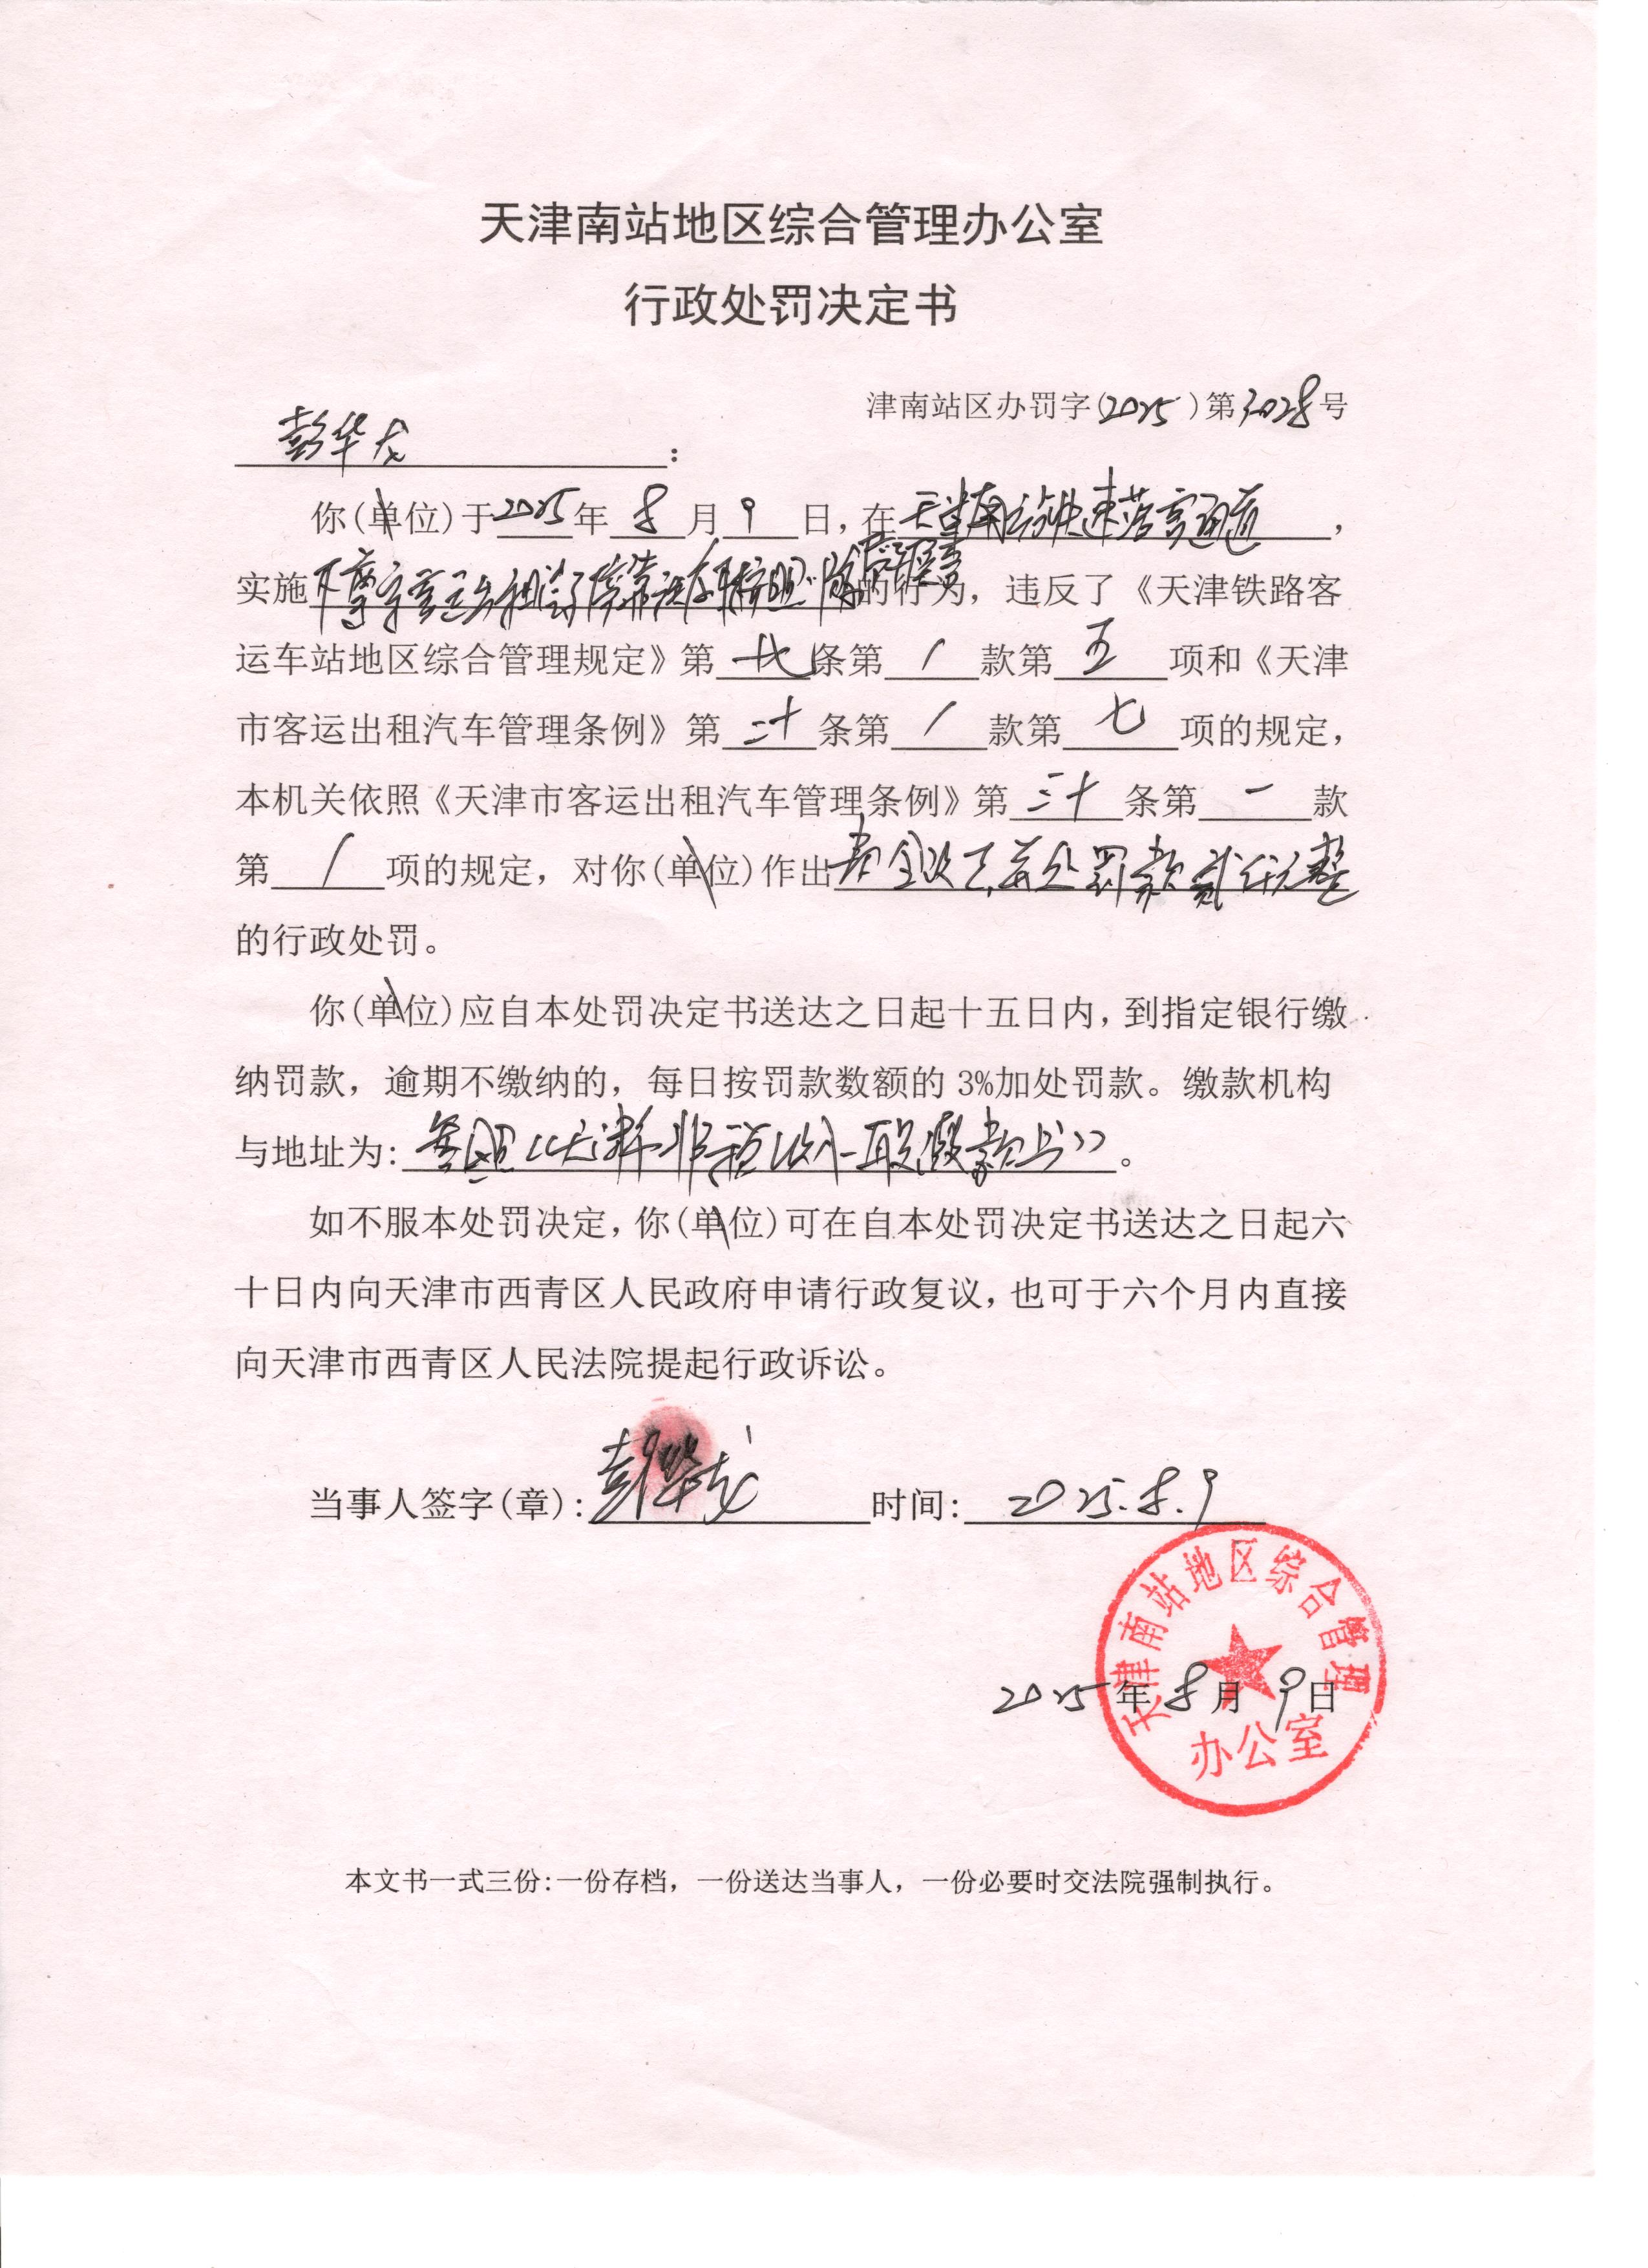 天津南站地区综合管理办公室
行政处罚决定书
津南站区办罚字(2025)第3028号
彭华龙:
你(单位)于2025年8月9日,在天津南站快速落客通道,
实施不遵守客运出租的行为,违反了《天津铁路客
运车站地区综合管理规定》第七条第/款第五项和《天津
市客运出租汽车管理条例》第二十条第/款第七项的规定,
本机关依照《天津市客运出租汽车管理条例》第三十条第一款
第/项的规定,对你(单位)作出责令改正,并处罚款贰仟元整
的行政处罚。
你(单位)应自本处罚决定书送达之日起十五日内,到指定银行缴
纳罚款,逾期不缴纳的,每日按罚款数额的3%加处罚款。缴款机构
与地址为:参照《天津市非税收入一般缴款书》。
如不服本处罚决定,你(单位)可在自本处罚决定书送达之日起六
十日内向天津市西青区人民政府申请行政复议,也可于六个月内直接
向天津市西青区人民法院提起行政诉讼。
当事人签字(章):彭华龙 时间:2025.8.9
天津南站地区综合管理
2025年8月9日
办公室
本文书一式三份:一份存档,一份送达当事人,一份必要时交法院强制执行。